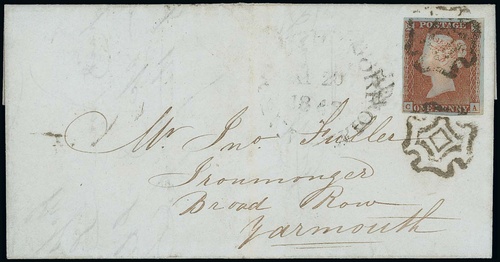 POSTAGE
C ONE PENNY A
20
Mr. Jno Fuller
Ironmonger
Broad Row
Yarmouth